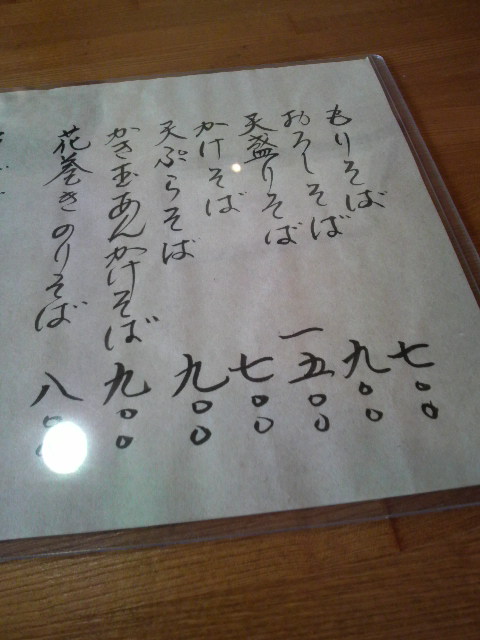 もりそば 七〇〇
おろしそば 九〇〇
天盛りそば 一五〇〇
かけそば 七〇〇
天ぷらそば 九〇〇
かき玉あんかけそば 九〇〇
花巻きのりそば 八〇〇